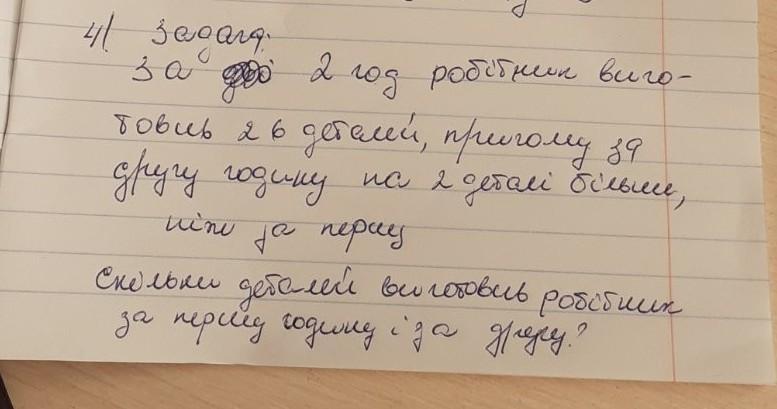 4) Задача.
За 2 год робітник виго-
товив 26 деталей, причому за
другу годину на 2 деталі більше,
ніж за першу
Скільки деталей виготовив робітник
за першу годину і за другу?